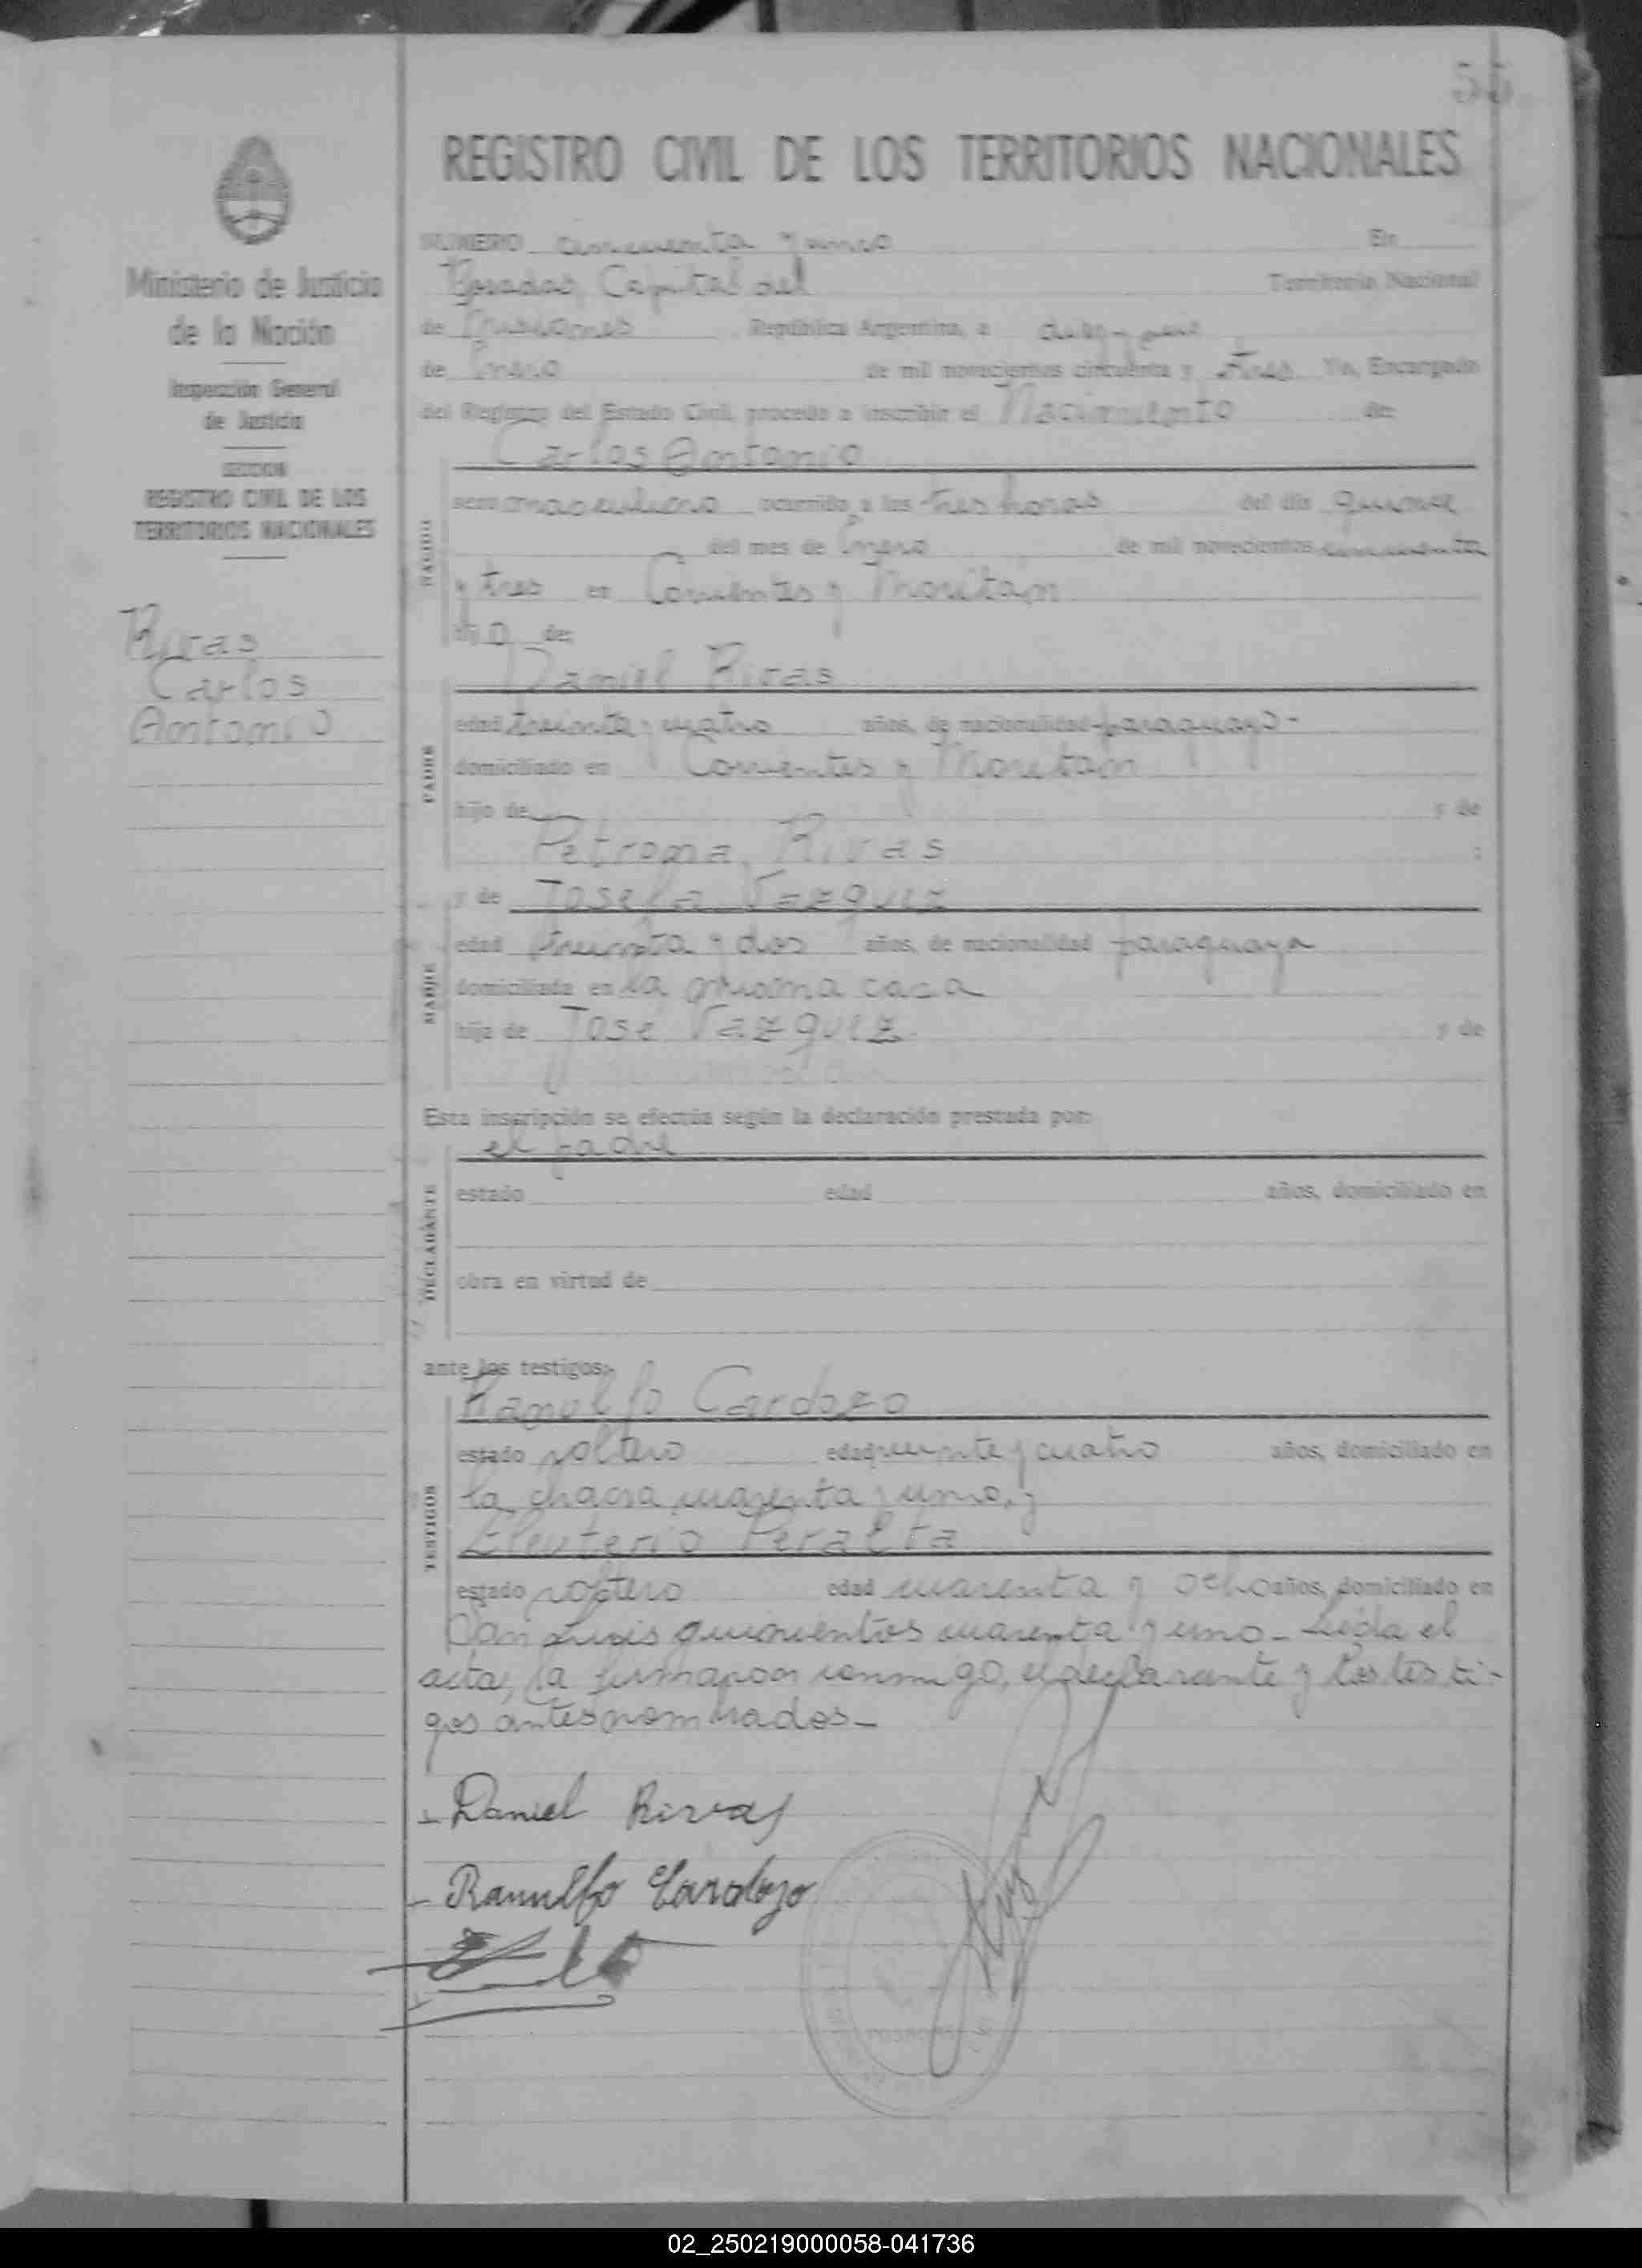 55
REGISTRO CIVIL DE LOS TERRITORIOS NACIONALES
Ministerio de Justicia
de la Nación
Inspección General
de Justicia
SECCION
REGISTRO CIVIL DE LOS
TERRITORIOS NACIONALES
Rivas
Carlos
Antonio
NUMERO cincuenta y cinco En
Posadas, Capital del Territorio Nacional
de Misiones República Argentina, a
de Enero de mil novecientos cincuenta y tres Yo, Encargado
del Registro del Estado Civil, procedo a inscribir el Nacimiento de:
Carlos Antonio
NACIDO
sexo masculino ocurrido a las tres horas del día quince
del mes de Enero de mil novecientos cincuenta
y tres en Corrientes y Moritán
hijo de:
PADRE
Daniel Rivas
edad treinta y cuatro años, de nacionalidad paraguayo-
domiciliado en Corrientes y Moritán
hijo de y de
Petrona Rivas ;
MADRE
y de Josefa Vazquez
edad treinta y dos años, de nacionalidad paraguaya
domiciliada en la misma casa
hija de José Vazquez y de
Esta inscripción se efectúa según la declaración prestada por:
DECLARANTE
el padre
estado edad años, domiciliado en
obra en virtud de
ante los testigos:
TESTIGOS
Ranulfo Cardozo
estado soltero edad veinte y cuatro años, domiciliado en
la chacra cuarenta y uno, y
Eleuterio Peralta
estado soltero edad cuarenta y ocho años, domiciliado en
San Luis quinientos cuarenta y uno_ Leída el
acta, la firmaron conmigo, el declarante y los testi-
gos antes nombrados_
Daniel Rivas
Ranulfo Cardozo
02_250219000058-041736